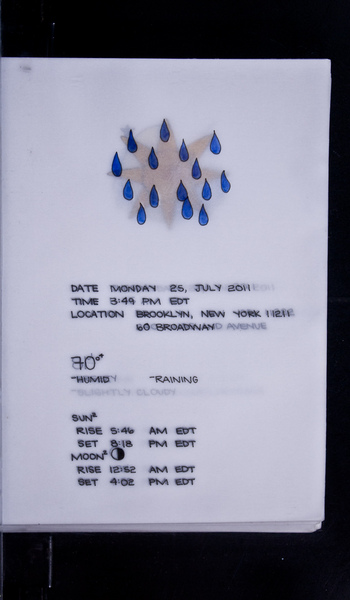 DATE MONDAY 25, JULY 2011
TIME 3:49 PM EDT
LOCATION BROOKLYN, NEW YORK 11211
60 BROADWAY AVENUE
70°
~HUMID ~RAINING
~SLIGHTLY CLOUDY
SUN²
RISE 5:46 AM EDT
SET 8:18 PM EDT
MOON²
RISE 12:52 AM EDT
SET 4:02 PM EDT